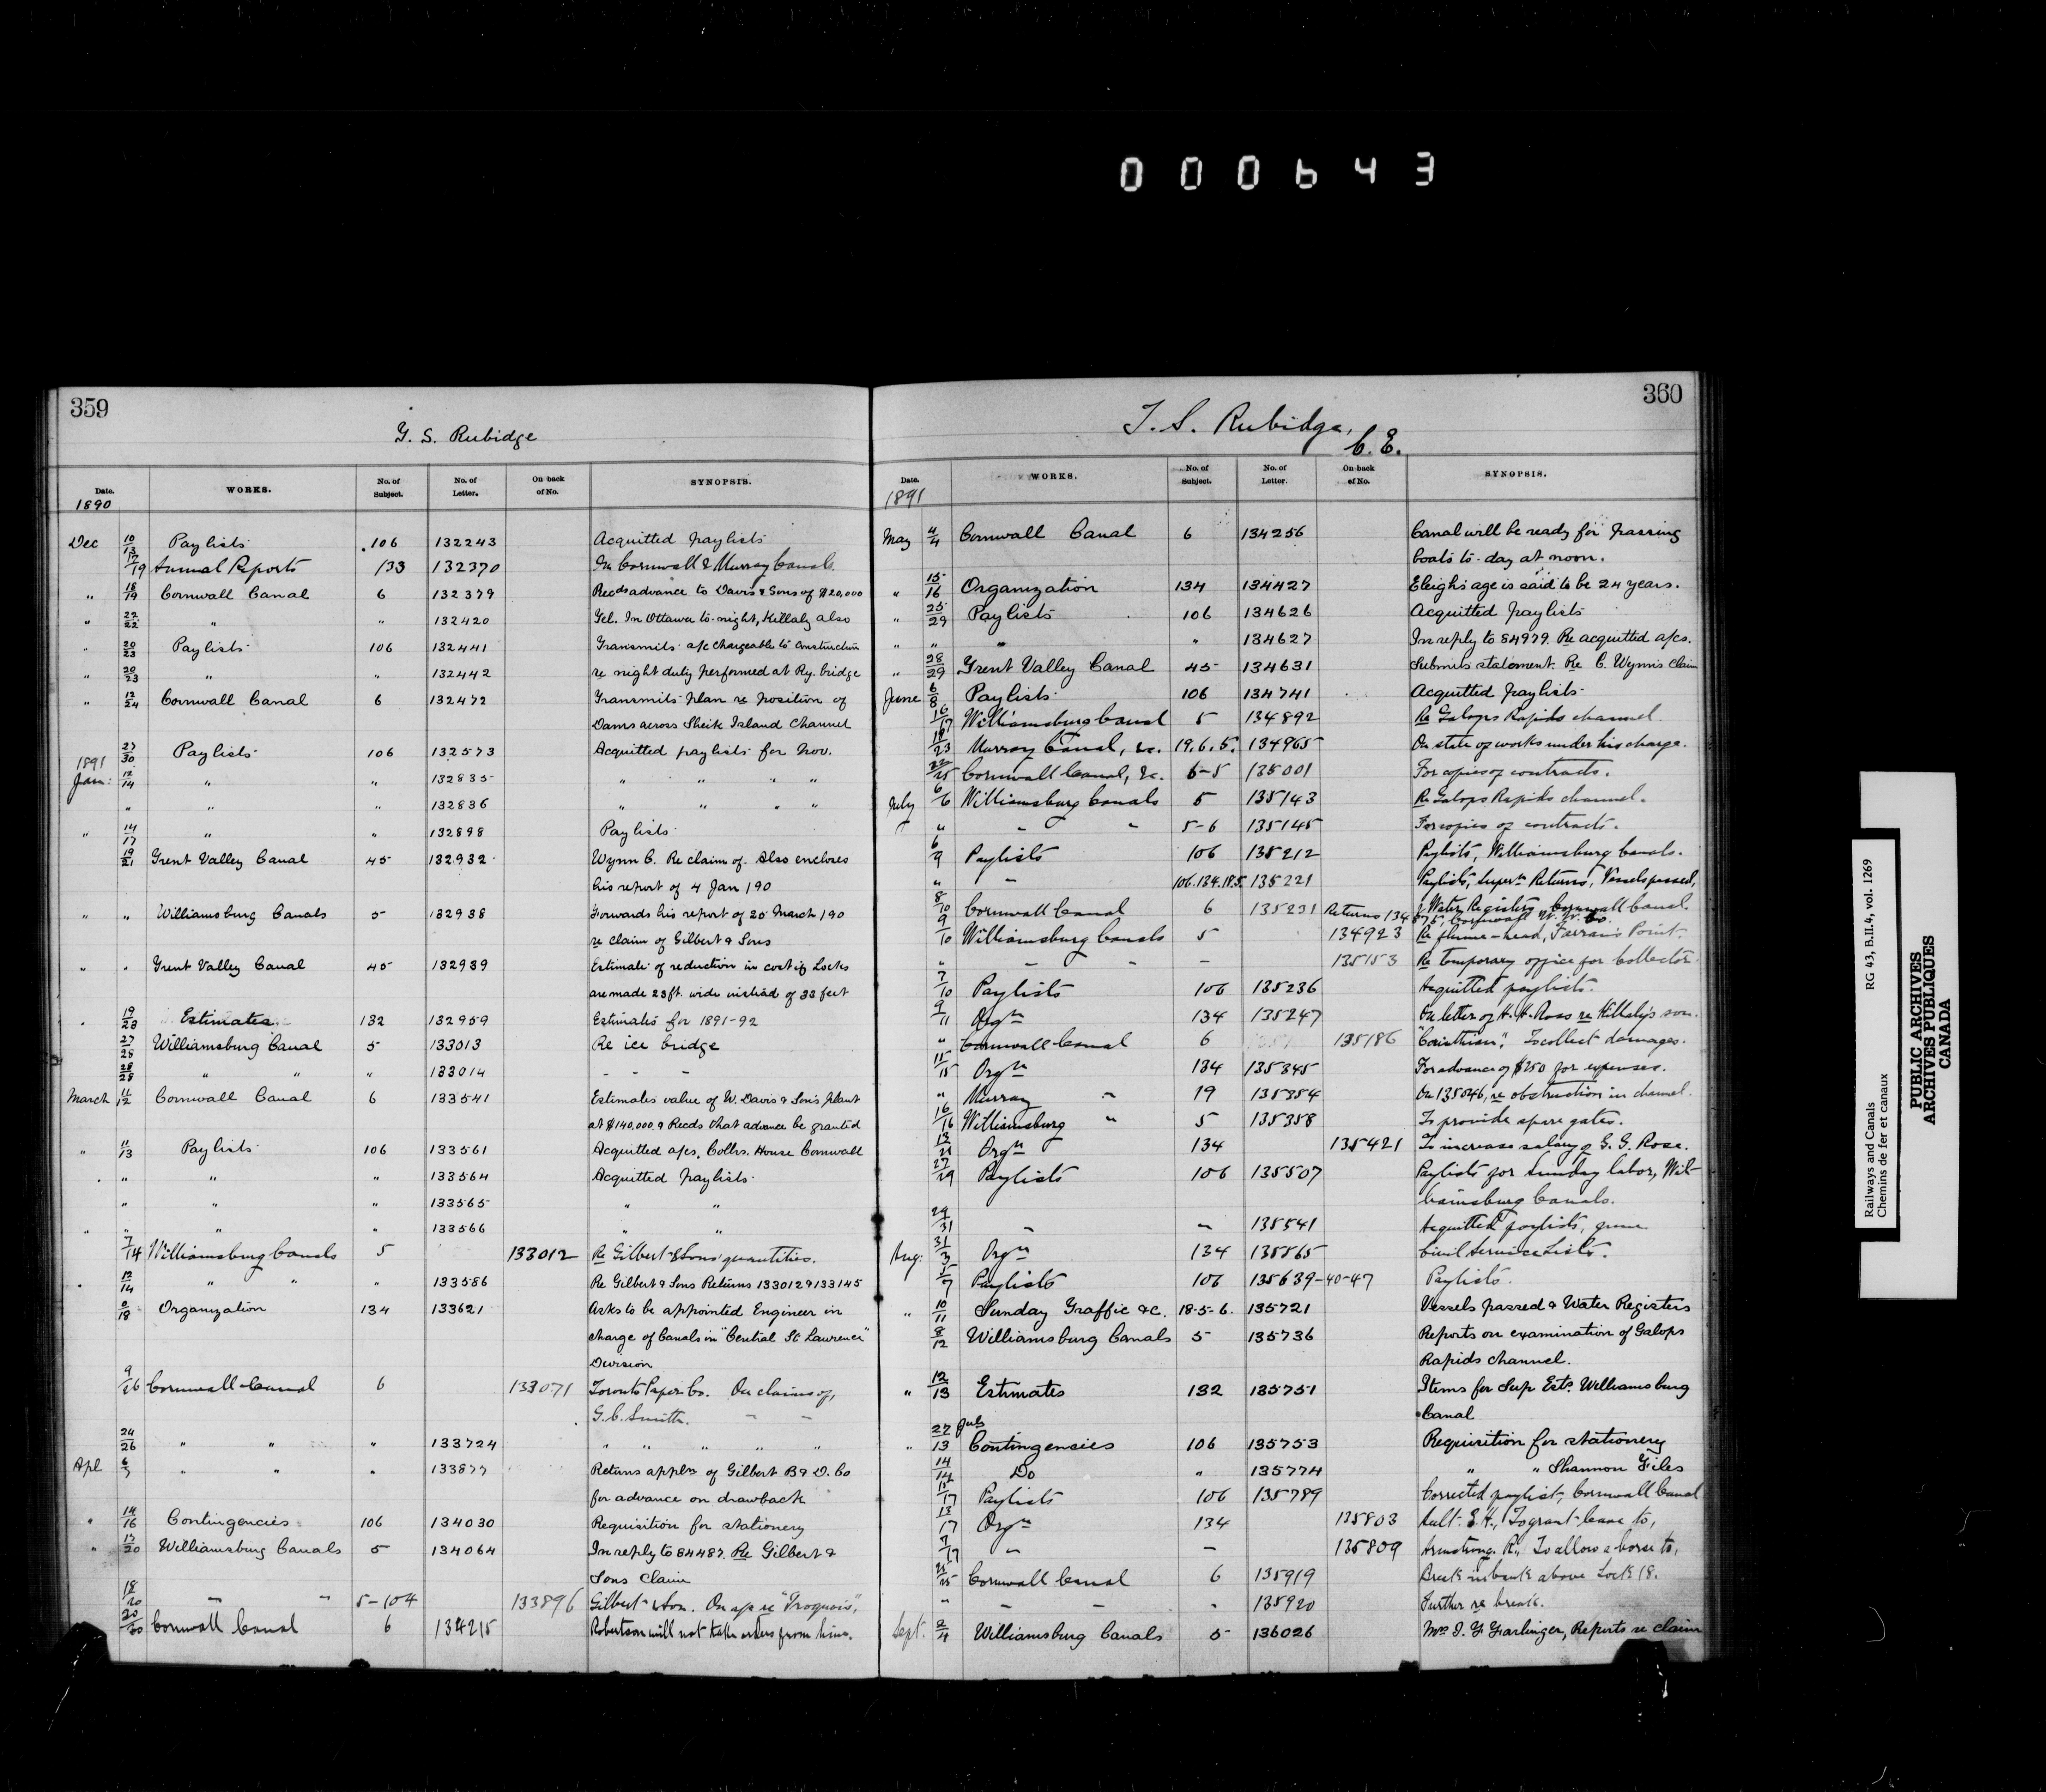 000643
359
G. S. Rubidge
Date. WORKS. No. of Subject. No. of Letter. On back of No. SYNOPSIS.
1890
Dec 10/13 Paylists 106 132243 Acquitted paylists
17/19 Annual Reports 133 132370 On Cornwall & Murray Canals
" 18/19 Cornwall Canal 6 132379 Recds advance to Davis & Sons of $20,000
" 22/22 " " 132420 Tel. In Ottawa to-night, Killaly also
" 20/23 Paylists 106 132441 Transmits a/c chargeable to Construction
" 20/23 " " 132442 re night duty performed at Ry. bridge
" 12/24 Cornwall Canal 6 132472 Transmits plan re position of
Dams across Sheik Island Channel
27/30 Paylists 106 132573 Acquitted paylists for Nov.
1891
Jan: 12/14 " " 132835 " " " "
" " " 132836 " " " "
" 14/17 " " 132898 Paylists
19/21 Trent Valley Canal 45 132932 Wynn C. Re claim of. Also encloses
his report of 4 Jan / 90
" " Williamsburg Canals 5 132938 Forwards his report of 20 March / 90
re claim of Gilbert & Sons
" " Trent Valley Canal 45 132939 Estimate of reduction in cost if Locks
are made 23 ft. wide instead of 33 feet
" 19/28 Estimates 132 132959 Estimates for 1891-92
27/28 Williamsburg Canal 5 133013 Re ice bridge
28/28 " " " 133014 - - -
March 11/12 Cornwall Canal 6 133541 Estimates value of W. Davis & Sons plant
at $140,000 & Recds that advance be granted
" 11/13 Paylists 106 133561 Acquitted a/cs, Collrs. House Cornwall
" " " " 133564 Acquitted paylists
" " " 133565 " "
" " " " 133566 " "
7/14 Williamsburg Canals 5 133012 Re Gilbert & Sons quantities.
" 12/14 " " " 133586 Re Gilbert & Sons Returns 133012 & 133145
18 Organization 134 133621 Asks to be appointed Engineer in
charge of Canals in "Central St Lawrence"
Division
9/26 Cornwall Canal 6 133071 Toronto Paper Co. On claims of,
G. C. Smith. - -
24/26 " " " 133724 " " " " "
Apl 6/7 " " " 133877 Returns appln of Gilbert B & D. Co
for advance on drawback
" 14/16 Contingencies 106 134030 Requisition for stationery
" 17/20 Williamsburg Canals 5 134064 In reply to 84487. Re Gilbert &
Sons Claim
18/20 " " 5-104 133896 Gilbert & Son. On a/c re "Iroquois".
20/20 Cornwall Canal 6 134215 Robertson will not take orders from him.
360
T. S. Rubidge,
C. E.
Date. WORKS. No. of Subject. No. of Letter. On back of No. SYNOPSIS.
1891
May 4/4 Cornwall Canal 6 134256 Canal will be ready for passing
boats to-day at noon.
" 15/16 Organization 134 134427 Eleigh's age is said to be 24 years.
" 25/29 Paylists 106 134626 Acquitted paylists
" " " " 134627 In reply to 84979. Re acquitted a/cs.
" 28/29 Trent Valley Canal 45 134631 Submits statement. Re C. Wynn's claim
June 6/8 Paylists 106 134741 Acquitted paylists
16/17 Williamsburg Canal 5 134892 Re Galops Rapids channel
18/23 Murray Canal, &c. 19. 6. 5. 134965 On state of works under his charge.
22/25 Cornwall Canal, &c. 6-5 135001 For copies of contracts.
July 6/6 Williamsburg Canals 5 135143 Re Galops Rapids channel.
" " " 5-6 135145 For copies of contracts.
6/9 Paylists 106 135212 Paylists, Williamsburg Canals.
" " 106. 134. 18.5. 135221 Paylists, Supern Returns, Vessels passed,
& Water Registers, Cornwall Canal.
8/10 Cornwall Canal 6 135231 Returns 134875, Cornwall W. W. Co.
9/10 Williamsburg Canals 5 134923 Re flume-head, Farran's Point.
" - - - 135153 Re temporary office for Collector.
7/10 Paylists 106 135236 Acquitted paylists.
9/11 Orgn 134 135247 On letter of H. A. Ross re Killaly's son.
" Cornwall Canal 6 135186 "Corinthian", To collect damages.
15 Orgn 134 135345 For advance of $250 for expenses.
" Murray " 19 135354 On 135046, re obstruction in channel.
16/16 Williamsburg " 5 135358 To provide spare gates.
Orgn 134 135421 To increase salary of G. G. Rose.
27/29 Paylists 106 135507 Paylists for Sunday labor, Wil-
liamsburg Canals.
29/31 " " 135541 Acquitted paylists, June.
Aug: 31/3 Orgn 134 135565 Civil Service Lists.
5/7 Paylists 106 135639-40-47 Paylists.
" 10/11 Sunday Traffic &c. 18-5-6. 135721 Vessels passed & Water Registers
8/12 Williamsburg Canals 5 135736 Reports on examination of Galops
Rapids channel.
" 12/13 Estimates 132 135751 Items for Sup Ests. Williamsburg
Canal
" 27 July/13 Contingencies 106 135753 Requisition for stationery
14/14 Do " 135774 " " Shannon Files
15/17 Paylists 106 135789 Corrected paylist, Cornwall Canal
13/17 Orgn 134 135803 Ault. E. H., To grant leave to,
7/17 " - 135809 Armstrong R., To allow a horse to,
25 Cornwall Canal 6 135919 Break in bank above Lock 18.
" - - " 135920 Further re break.
Sept. 2/4 Williamsburg Canals 5 136026 Mrs I. G. Farlinger, Reports re claim
Railways and Canals RG 43, B.II.4, vol. 1269
Chemins de fer et canaux
PUBLIC ARCHIVES
ARCHIVES PUBLIQUES
CANADA